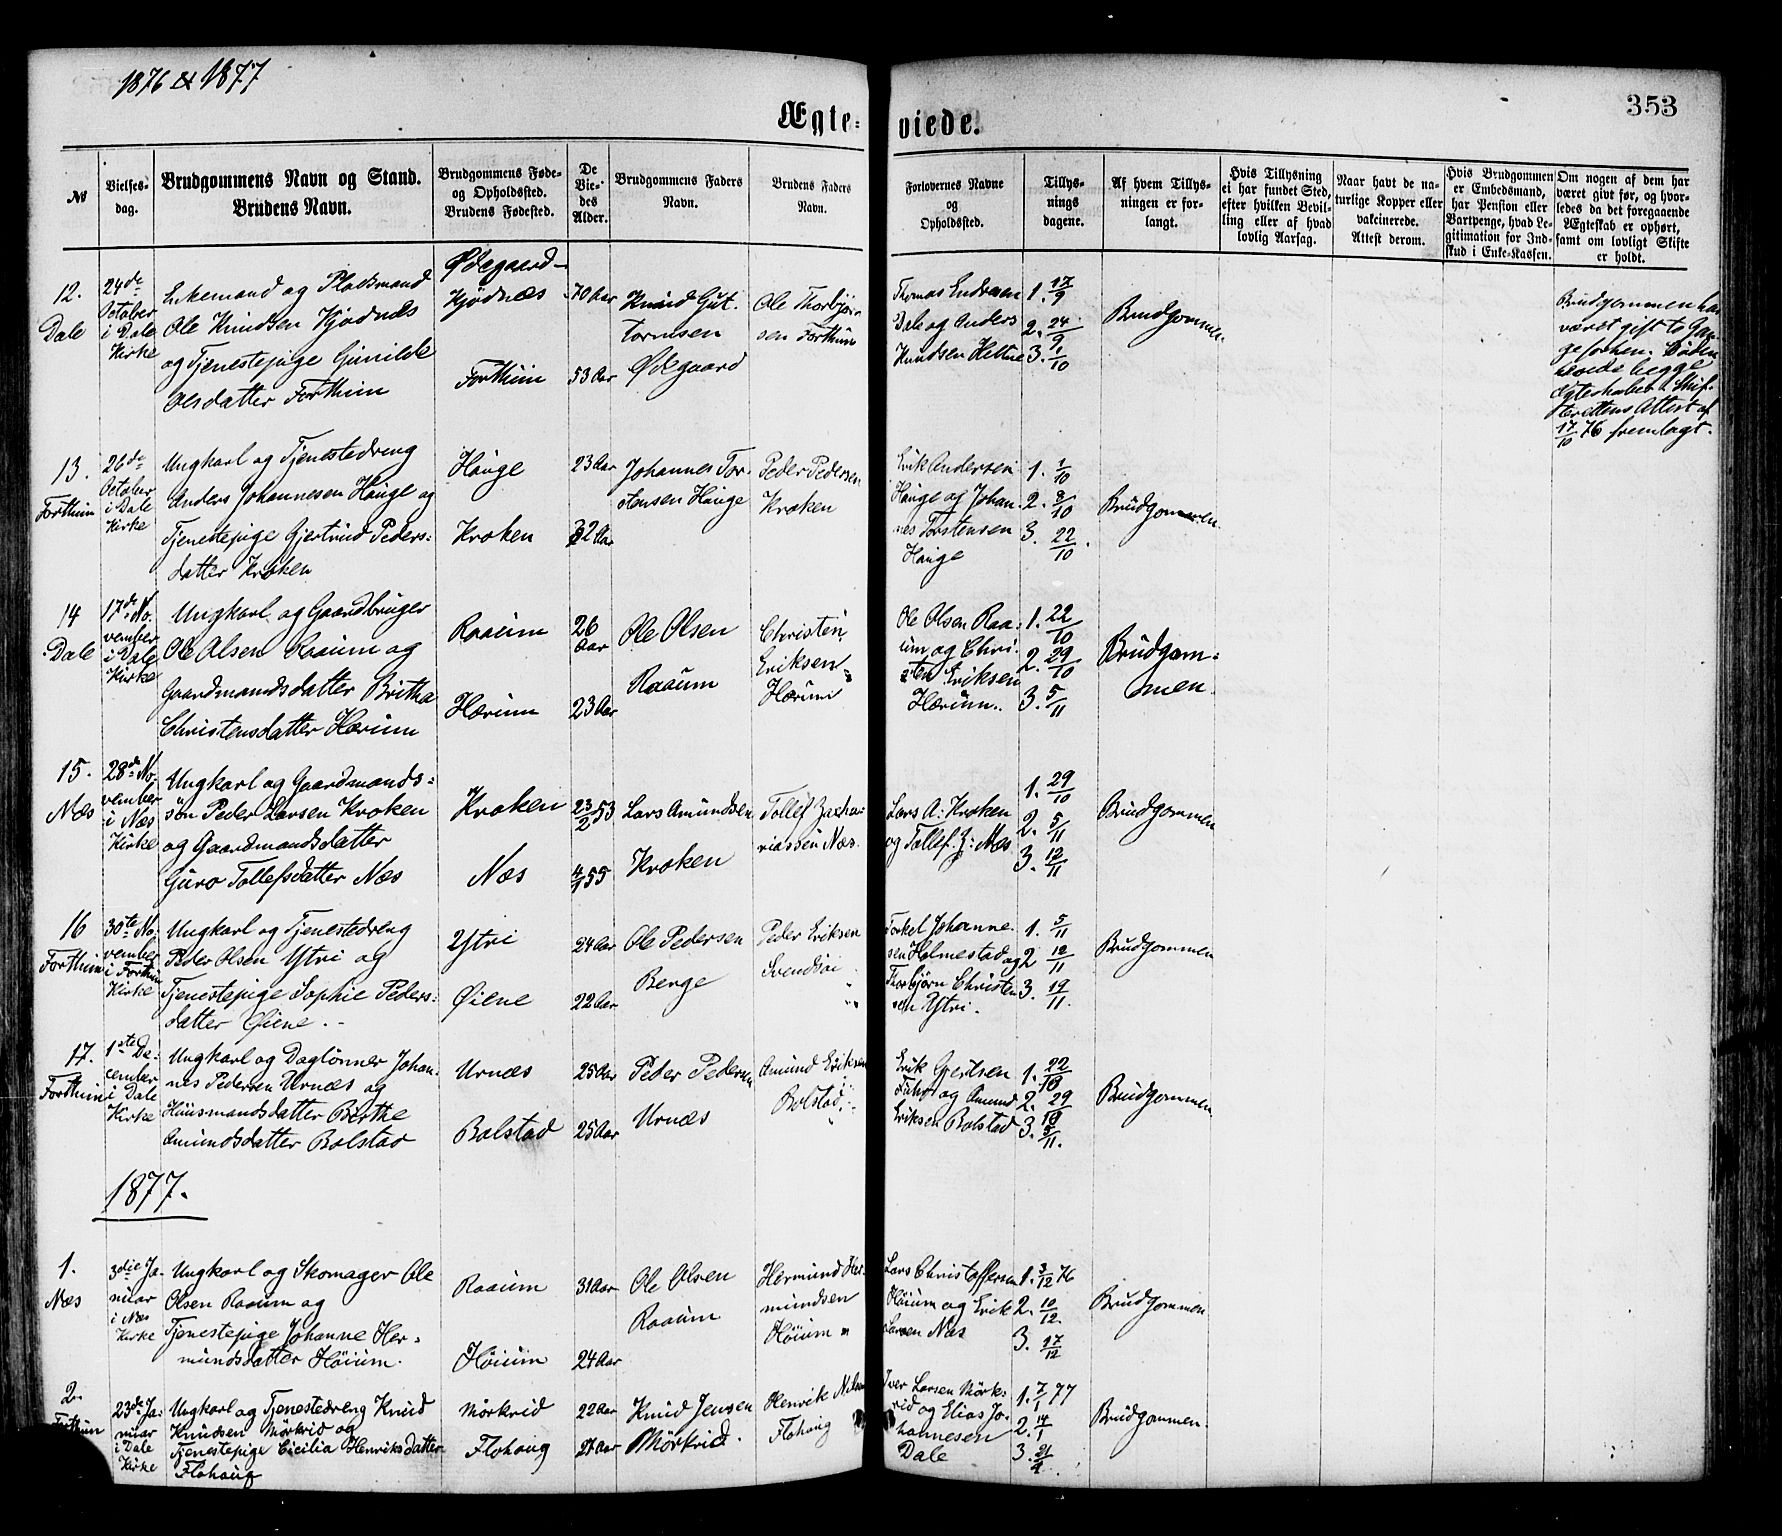 1876 & 1877
Ægte=
viede.
353
No
Vielses-
dag.
Brudgommens Navn og Stand.
Brudens Navn.
Brudgommens Føde-
og Opholdssted.
Brudens Fødested.
De
Vie-
des
Alder.
Brudgommens Faders
Navn.
Brudens Faders
Navn.
Forlovernes Navne
og
Opholdssted.
Tillys-
nings
dagene.
Af hvem Tillys-
ningen er for-
langt.
Hvis Tillysning
ei har fundet Sted,
efter hvilken Bevil-
ling eller af hvad
lovlig Aarsag.
Naar havt de na-
turlige Kopper eller
vakcinerede.
Attest derom.
Hvis Brudgommen
er Embedsmand,
har Pension eller
Vartpenge, hvad Le-
gitimation for Ind-
skud i Enke-Kassen.
Om nogen af dem har
været gift før, og hvor-
ledes da det foregaaende
Ægteskab er ophørt,
samt om lovligt Skifte
er holdt.
12.
Dale
24de
October
i Dale
Kirke
Enkemand og Pladsmand
Ole Knudsen Kjødnæs
og Tjenestepige Gunilde
Olsdatter Forthun
Ødegaard
Kjødnæs
Forthun
70 Aar
53 Aar
Knud Gut.
tormsen
Ødegaard
Ole Thorbjør-
sen Forthun
Thomas Endresen
Dale og Anders
Knudsen Heltne
1. 17/9
2. 24/9
3. 1/10
Brudgommen
Brudgommen har
været gift to Gan-
ge forhen. Døden
hævede begge
Ægteskaber. Skif-
terettens Attest af
17/10 76 fremlagt.
13.
Forthun
26de
October
i Dale
Kirke
Ungkarl og Tjenestedreng
Anders Johannesen Hauge og
Tjenestepige Gjertrud Peders-
datter Kroken
Hauge
Kroken
23 Aar
32 Aar
Johannes Tor-
stensen Hauge
Peder Pedersen
Kroken
Erik Andersen
Hauge og Johan-
nes Torstensen
Hauge
1. 1/10
2. 8/10
3. 22/10.
Brudgommen
14
Dale
17de No-
vember
i Dale
Kirke
Ungkarl og Gaardbruger
Ole Olsen Raaum og
Gaardmandsdatter Britha
Christensdatter Hærum
Raaum
Hærum
26
Aar
23 Aar
Ole Olsen
Raaum
Christen
Eriksen
Hærum
Ole Olsen Raa-
um og Chri-
sten Eriksen
Hærum.
1. 22/10
2. 29/10
3. 5/11
Brudgom=
men.
15.
Næs
28de No-
vember
i Næs
Kirke
Ungkarl og Gaardmands-
søn Peder Larsen Kroken
og Gaardmandsdatter
Guro Tollefsdatter Næs
Kroken
Næs
23/2 53
4/1 55
Lars Amundsen
Kroken
Tollef Zacha-
riassen Næs.
Lars A. Kroken
og Tollef. Z: Næs
1. 29/10
2. 5/11
3. 12/11
Brudgommen
16
Forthun
30te No-
vember
i Forthun
Kirke
Ungkarl og Tjenestedreng
Peder Olsen Ystri og
Tjenestepige Sophie Peders-
datter Øiene.
Ystri
Øiene
24 Aar
22 Aar
Ole Pedersen
Berge
Peder Eriksen
Svendsøi
Torkel Johanne-
sen Holmestad og
Thorbjørn Christen
sen Ystri.
1. 5/11
2 12/11
3. 19/11.
Brudgommen
17.
Forthun
1ste De-
cember
i Dale
Kirke
Ungkarl og Daglønner Johan-
nes Pedersen Urnæs og
Huusmandsdatter Berthe
Amundsdatter Bolstad
Urnæs
Bolstad
25 Aar
25 Aar
Peder Pedersen
Urnæs
Amund Eriksen
Bolstad
Erik Gjertsen
Fuhr og Amund
Eriksen Bolstad
1. 22/10
2. 29/10
3. 5/11.
Brudgommen
1877.
1.
Næs
3die Ja-
nuar
i Næs
Kirke
Ungkarl og Skomager Ole
Olsen Raaum og
Tjenestepige Johanne Her-
mundsdatter Høium.
Raaum
Høium
31 Aar
24 Aar
Ole Olsen
Raaum
Hermund Her-
mundsen
Høium
Lars Christoffersen
Høium og Erik
Larsen Næs
1. 3/12 76
2. 10/12.
3. 17/12
Brudgommen
2.
Forthun
23de Ja-
nuar
i Dale
Kirke
Ungkarl og Tjenestedreng Knud
Knudsen Mørkrid og
Tjenestepige Cicilia Henriksdatter
Flohaug
Mørkrid
Flohaug
22 Aar
27 Aar
Knud Jensen
Mørkrid.
Henrik Nilsen
Flohaug
Iver Larsen Mørk-
rid og Elias Jo-
hannesen
Dale
1. 7/1 77
2. 14/1
3. 21/1
Brudgommen.